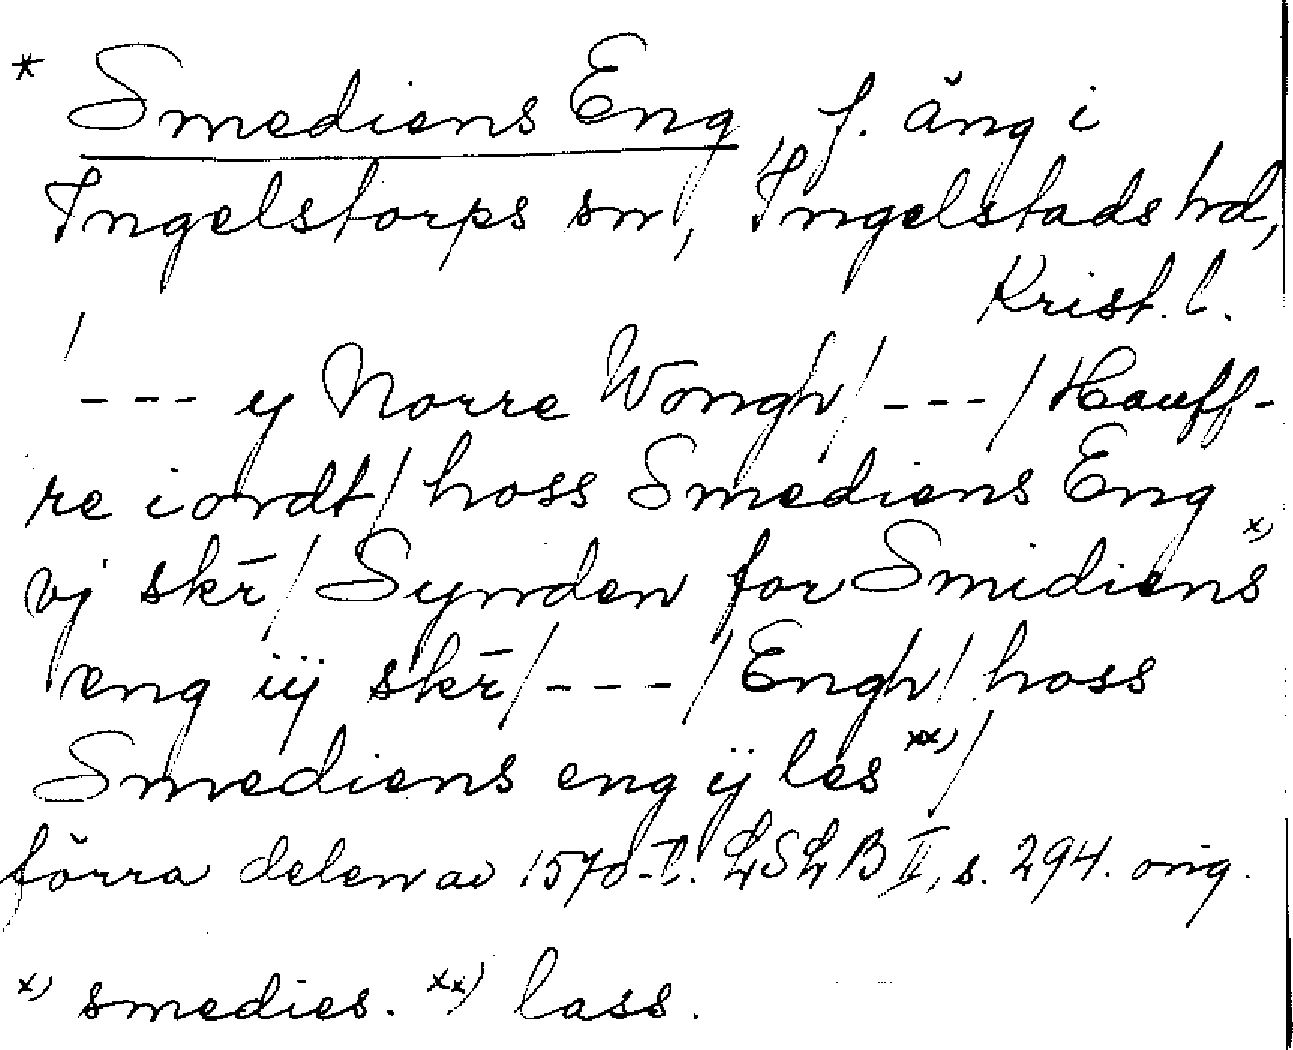 * Smediens Eng f. äng i
Ingelstorps sn, Ingelstads hd,
Krist. l.
/
--- y Norre Wongh/---/Hauff-
re iordt/ hoss Smediens Eng
vj skr̄/ Synden for Smidiens x)
eng iij skr̄/---/Engh/ hoss
Smediens eng ij les xx)/
förra delen av 1570-t. LSLB II, s. 294. orig.
x) smedies. xx) lass.